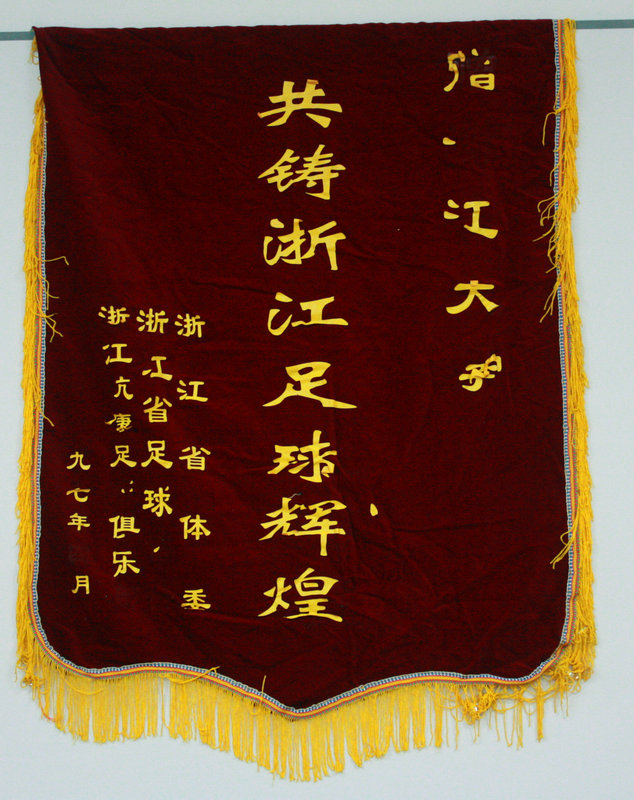 赠 江大学
共铸浙江足球辉煌
浙江省体委
浙江省足球
浙江亢康足 俱乐
九七年 月